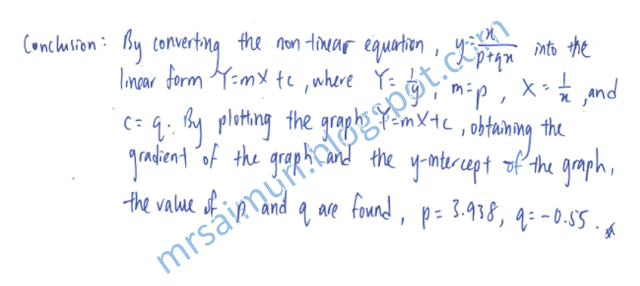 Conclusion: By converting the non-linear equation, y = x/(p+qx) into the
linear form Y=mX+c, where Y = 1/y, m=p, X = 1/x, and
c = q. By plotting the graph Y=mX+c, obtaining the
gradient of the graph and the y-intercept of the graph,
the value of p and q are found, p = 3.938, q = -0.55.
mrsaimun.blogspot.com